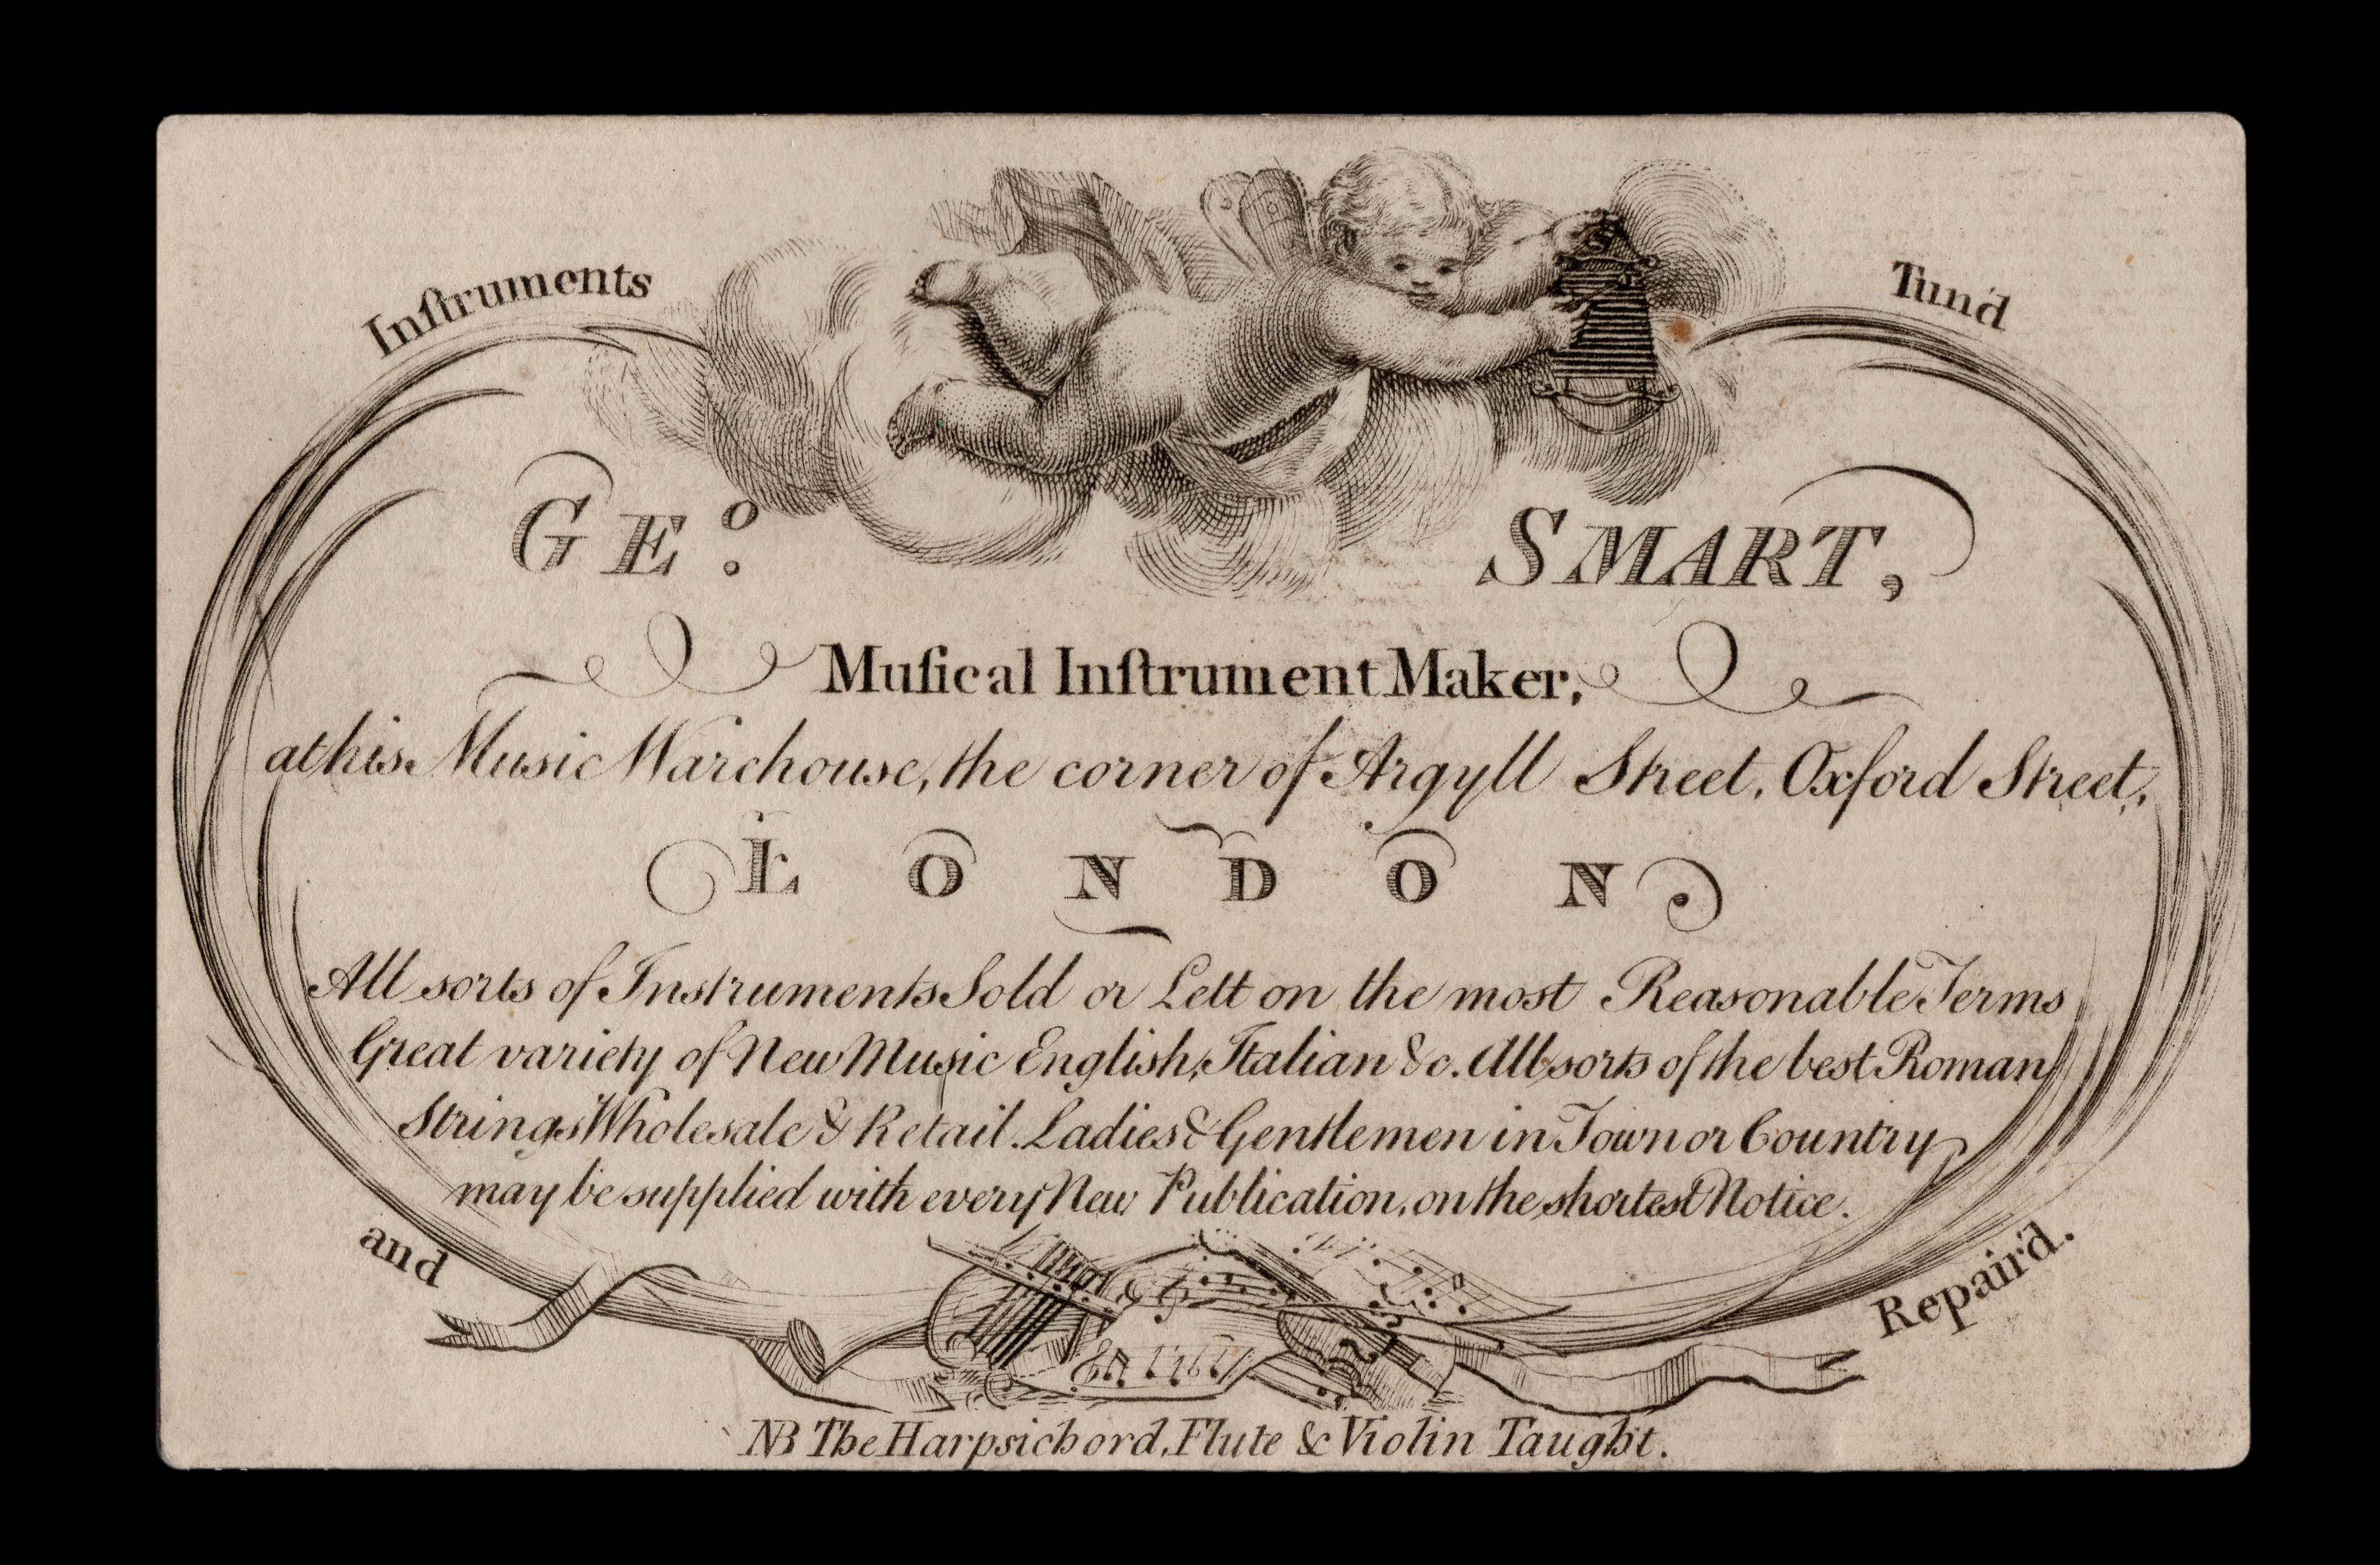 Inſtruments Tun'd
GEo. SMART,
Muſical Inſtrument Maker,
at his Music Warehouse, the corner of Argyll Street, Oxford Street,
LONDON.
All sorts of Instruments Sold or Lett on the most Reasonable Terms
Great variety of New Music English, Italian &c. All sorts of the best Roman
Strings Wholesale & Retail. Ladies & Gentlemen in Town or Country
may be supplied with every New Publication, on the shortest Notice.
and Repair'd.
NB The Harpsichord, Flute & Violin Taught.